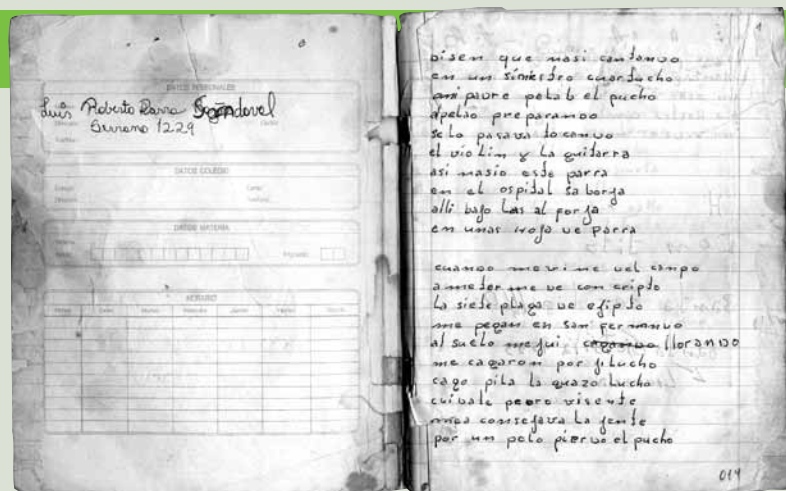 DATOS PERSONALES
Luis Roberto Parra Sandoval
Serrano 1229
DATOS COLEGIO
DATOS MATERIA
HORARIO
disen que nasi cantando
en un siniestro cuartucho
ami padre polab el pucho
apelao preparando
se lo pasava tocando
el violin y la guitarra
asi nasio este parra
en el ospital sa borja
alli bajo las al forja
en unas woja de parra
cuando me vine del campo
a meter me de con cripto
La siete plaga de ejipto
me pegan en san fernando
al suelo me fui llorando
me cagaron por filucho
cago pila la guazo Lucho
cuidate pedro visente
me a consejava La jente
por un pelo pierdo el pucho
014